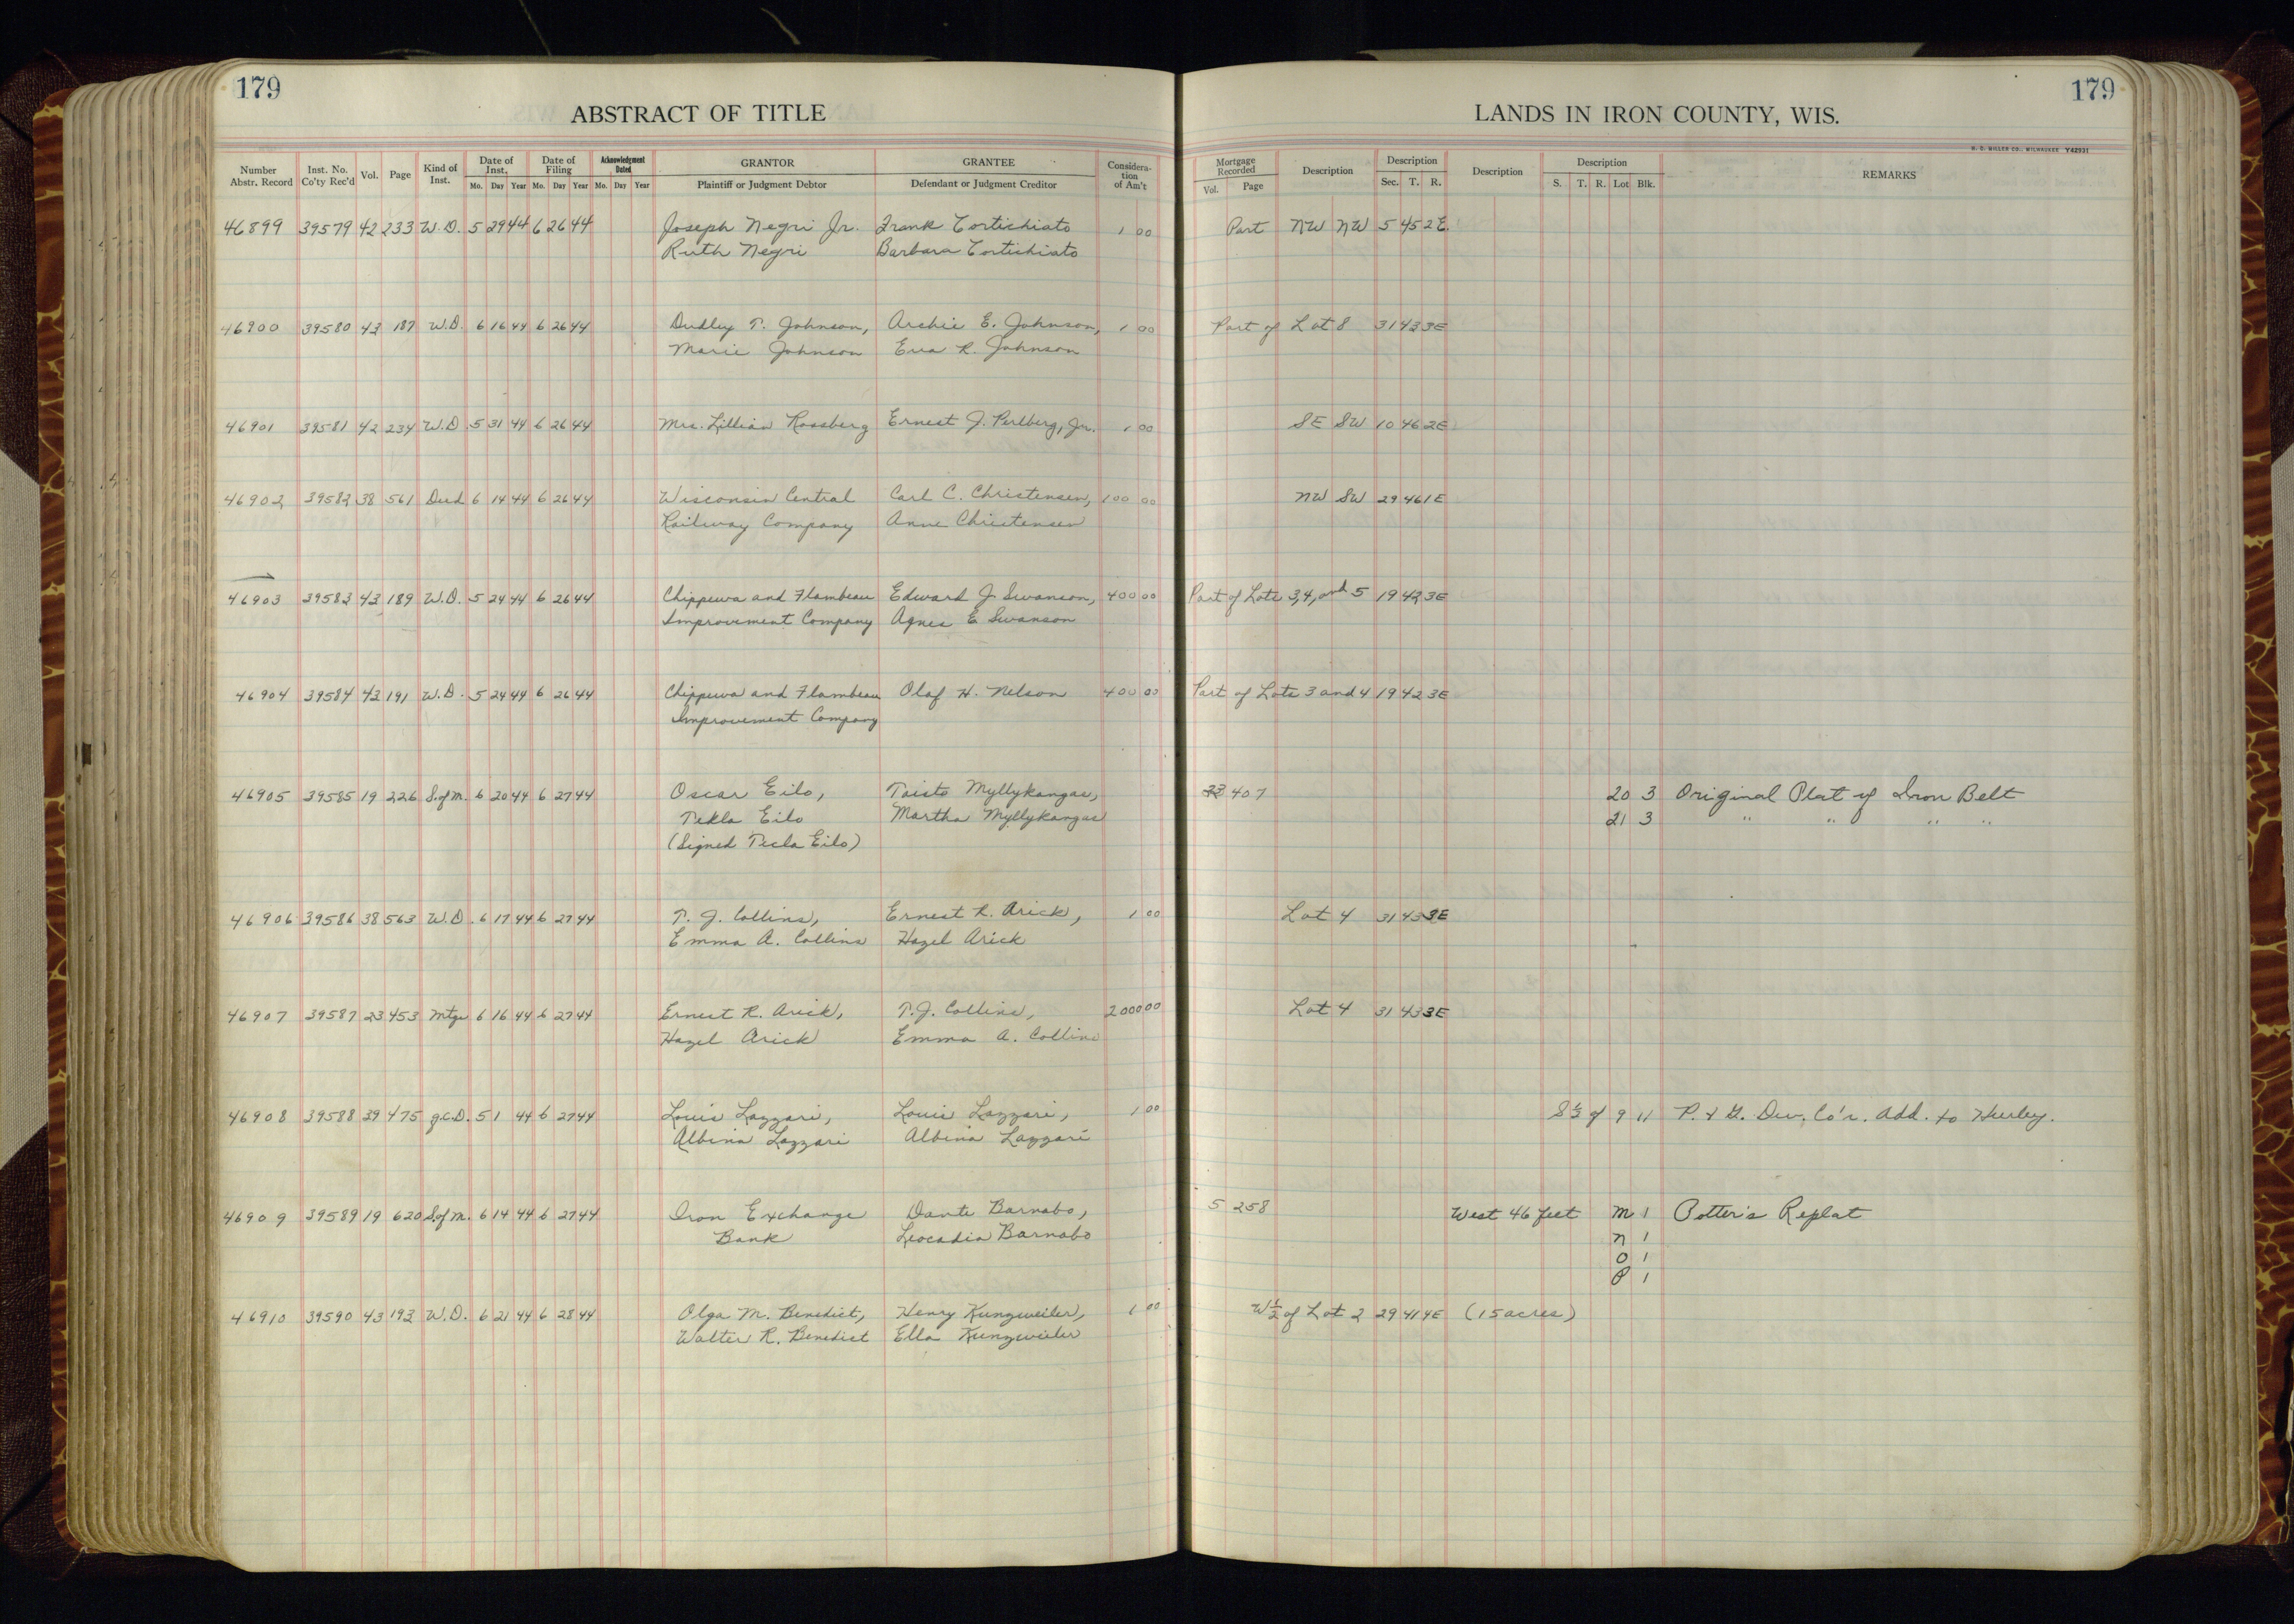 179
ABSTRACT OF TITLE
LANDS IN IRON COUNTY, WIS.
179
H. C. MILLER CO., MILWAUKEE Y42931
Number Abstr. Record Inst. No. Co'ty Rec'd Vol. Page Kind of Inst. Date of Inst. Mo. Day Year Date of Filing Mo. Day Year Acknowledgment Dated Mo. Day Year GRANTOR Plaintiff or Judgment Debtor GRANTEE Defendant or Judgment Creditor Considera-tion of Am't Mortgage Recorded Vol. Page Description Description Sec. T. R. Description Description S. T. R. Lot Blk. REMARKS
46899 39579 42 233 W.D. 5 29 44 6 26 44 Joseph Negri Jr. Frank Tortichiato 1 00 Part NW NW 5 45 2E.
Ruth Negri Barbara Tortichiato
46900 39580 43 187 W.D. 6 16 44 6 26 44 Dudley T. Johnson, Archie E. Johnson, 1 00 Part of Lot 8 31 43 3E
Marie Johnson Eva R. Johnson
46901 39581 42 234 W.D. 5 31 44 6 26 44 Mrs. Lillian Rossberg Ernest J. Perlberg, Jr. 1 00 SE SW 10 46 2E
46902 39582 38 561 Deed 6 14 44 6 26 44 Wisconsin Central Carl C. Christensen, 100 00 NW SW 29 46 1E
Railway Company Anne Christensen
46903 39583 43 189 W.D. 5 24 44 6 26 44 Chippewa and Flambeau Edward J. Swanson, 400 00 Part of Lots 3, 4, and 5 19 42 3E
Improvement Company Agnes E Swanson
46904 39584 43 191 W.D. 5 24 44 6 26 44 Chippewa and Flambeau Olaf H. Nelson 400 00 Part of Lots 3 and 4 19 42 3E
Improvement Company
46905 39585 19 226 S.of M. 6 20 44 6 27 44 Oscar Eilo, Toisto Myllykangas, 407 20 3 Original Plat of Iron Belt
Tekla Eilo Martha Myllykangas 21 3 " " " "
(Signed Tecla Eilo)
46906 39586 38 563 W.D. 6 17 44 6 27 44 T. J. Collins, Ernest R. Arick, 1 00 Lot 4 31 43 3E
Emma A. Collins Hazel Arick
46907 39587 23 453 Mtge 6 16 44 6 27 44 Ernest R. Arick, T. J. Collins, 2000 00 Lot 4 31 43 3E
Hazel Arick Emma A. Collins
46908 39588 39 475 Q.C.D. 5 1 44 6 27 44 Louis Lazzari, Louis Lazzari, 1 00 S½ of 9 11 P. & G. Dev. Co's. Add. to Hurley.
Albina Lazzari Albina Lazzari
46909 39589 19 620 S.of M. 6 14 44 6 27 44 Iron Exchange Dante Barnabo, 5 258 West 46 feet M 1 Potter's Replat
Bank Leocadia Barnabo N 1
O 1
P 1
46910 39590 43 193 W.D. 6 21 44 6 28 44 Olga M. Benedict, Henry Kunzweiler, 1 00 W½ of Lot 2 29 41 4E (15 acres)
Walter R. Benedict Ella Kunzweiler